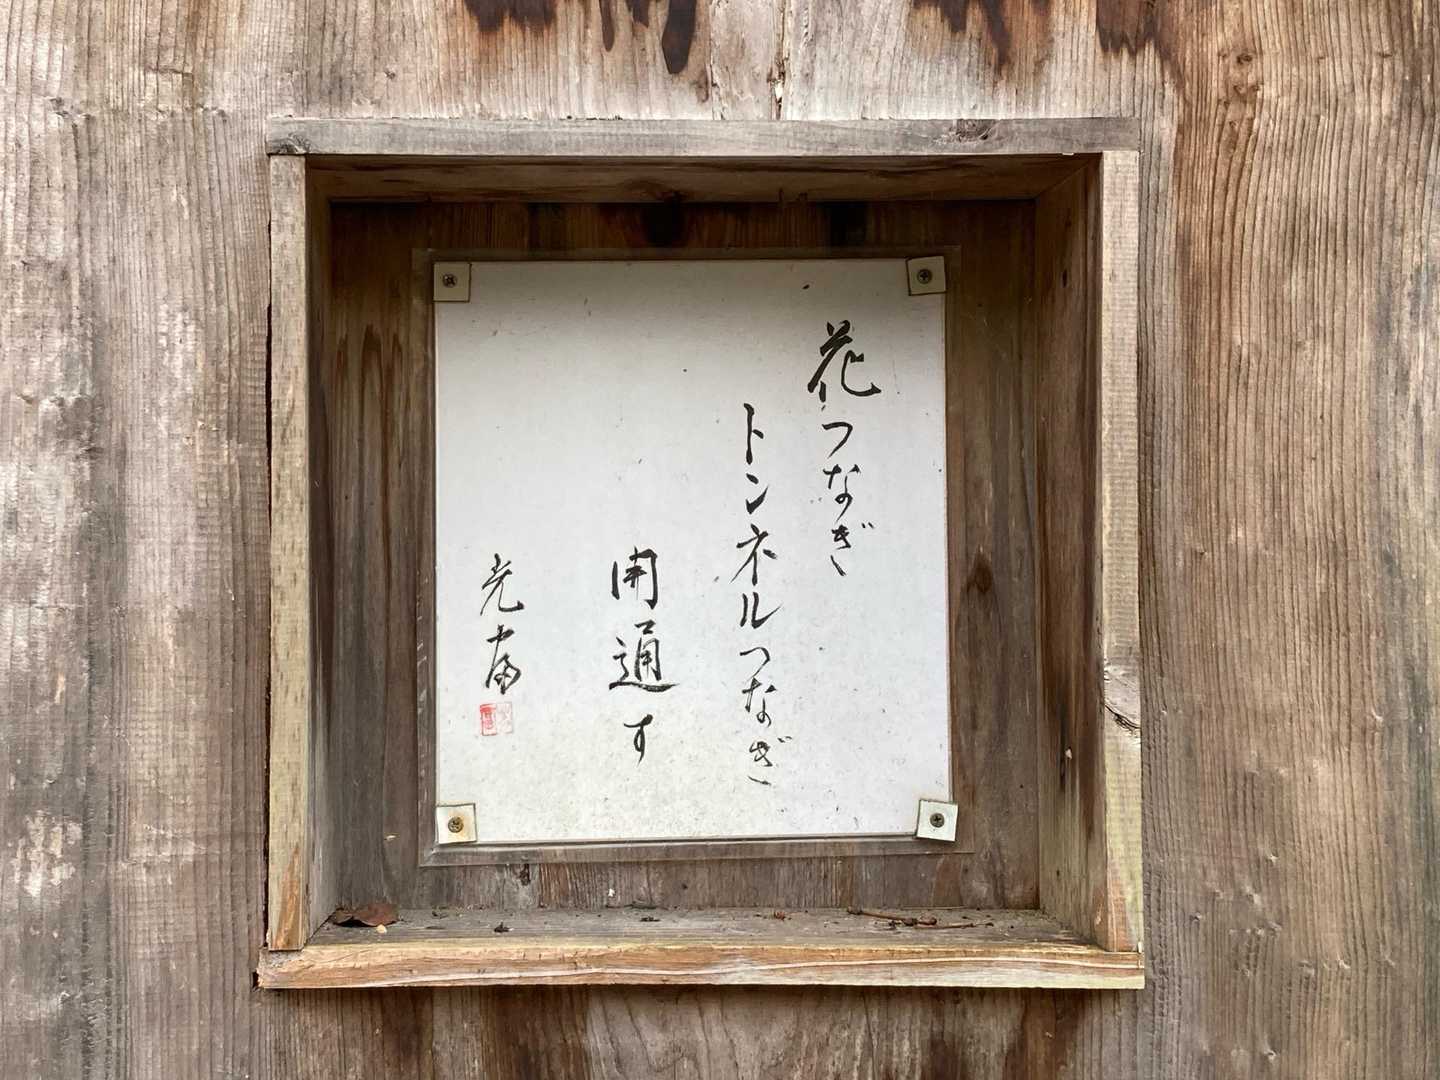 花つなぎ
トンネルつなぎ
開通す